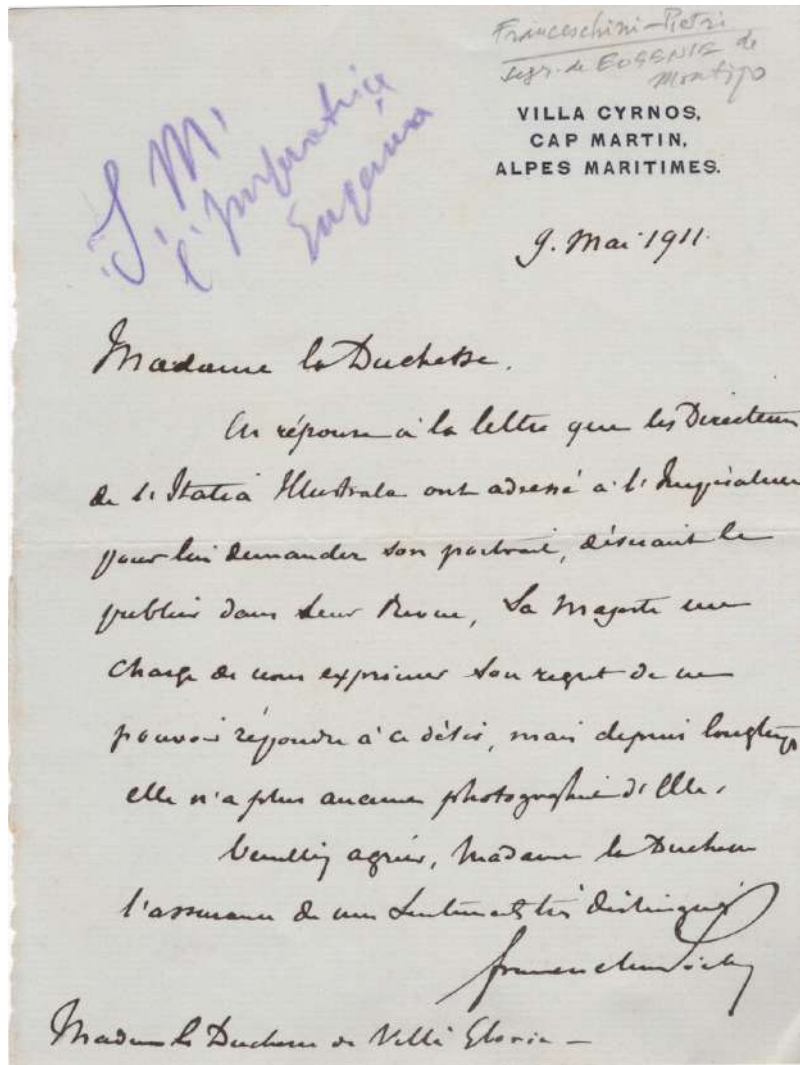 Franceschini-Pietri
segr. de EUGENIE de
Montijo
VILLA CYRNOS,
CAP MARTIN,
ALPES MARITIMES.
S. M.
l'Imperatrice
Eugenia
9. Mai 1911.
Madame la Duchesse.
En réponse à la lettre que les Directeurs
de l'Italia Illustrata ont adressé à l'Impératrice
pour lui demander son portrait, désirant le
publier dans leur Revue, Sa Majesté me
charge de vous exprimer son regret de ne
pouvoir répondre à ce désir, mais depuis longtemps
elle n'a plus aucune photographie d'Elle.
Veuillez agréer, Madame la Duchesse
l'assurance de mes sentiments très distingués
Franceschini Pietri
Madame la Duchesse de Villa Gloria —